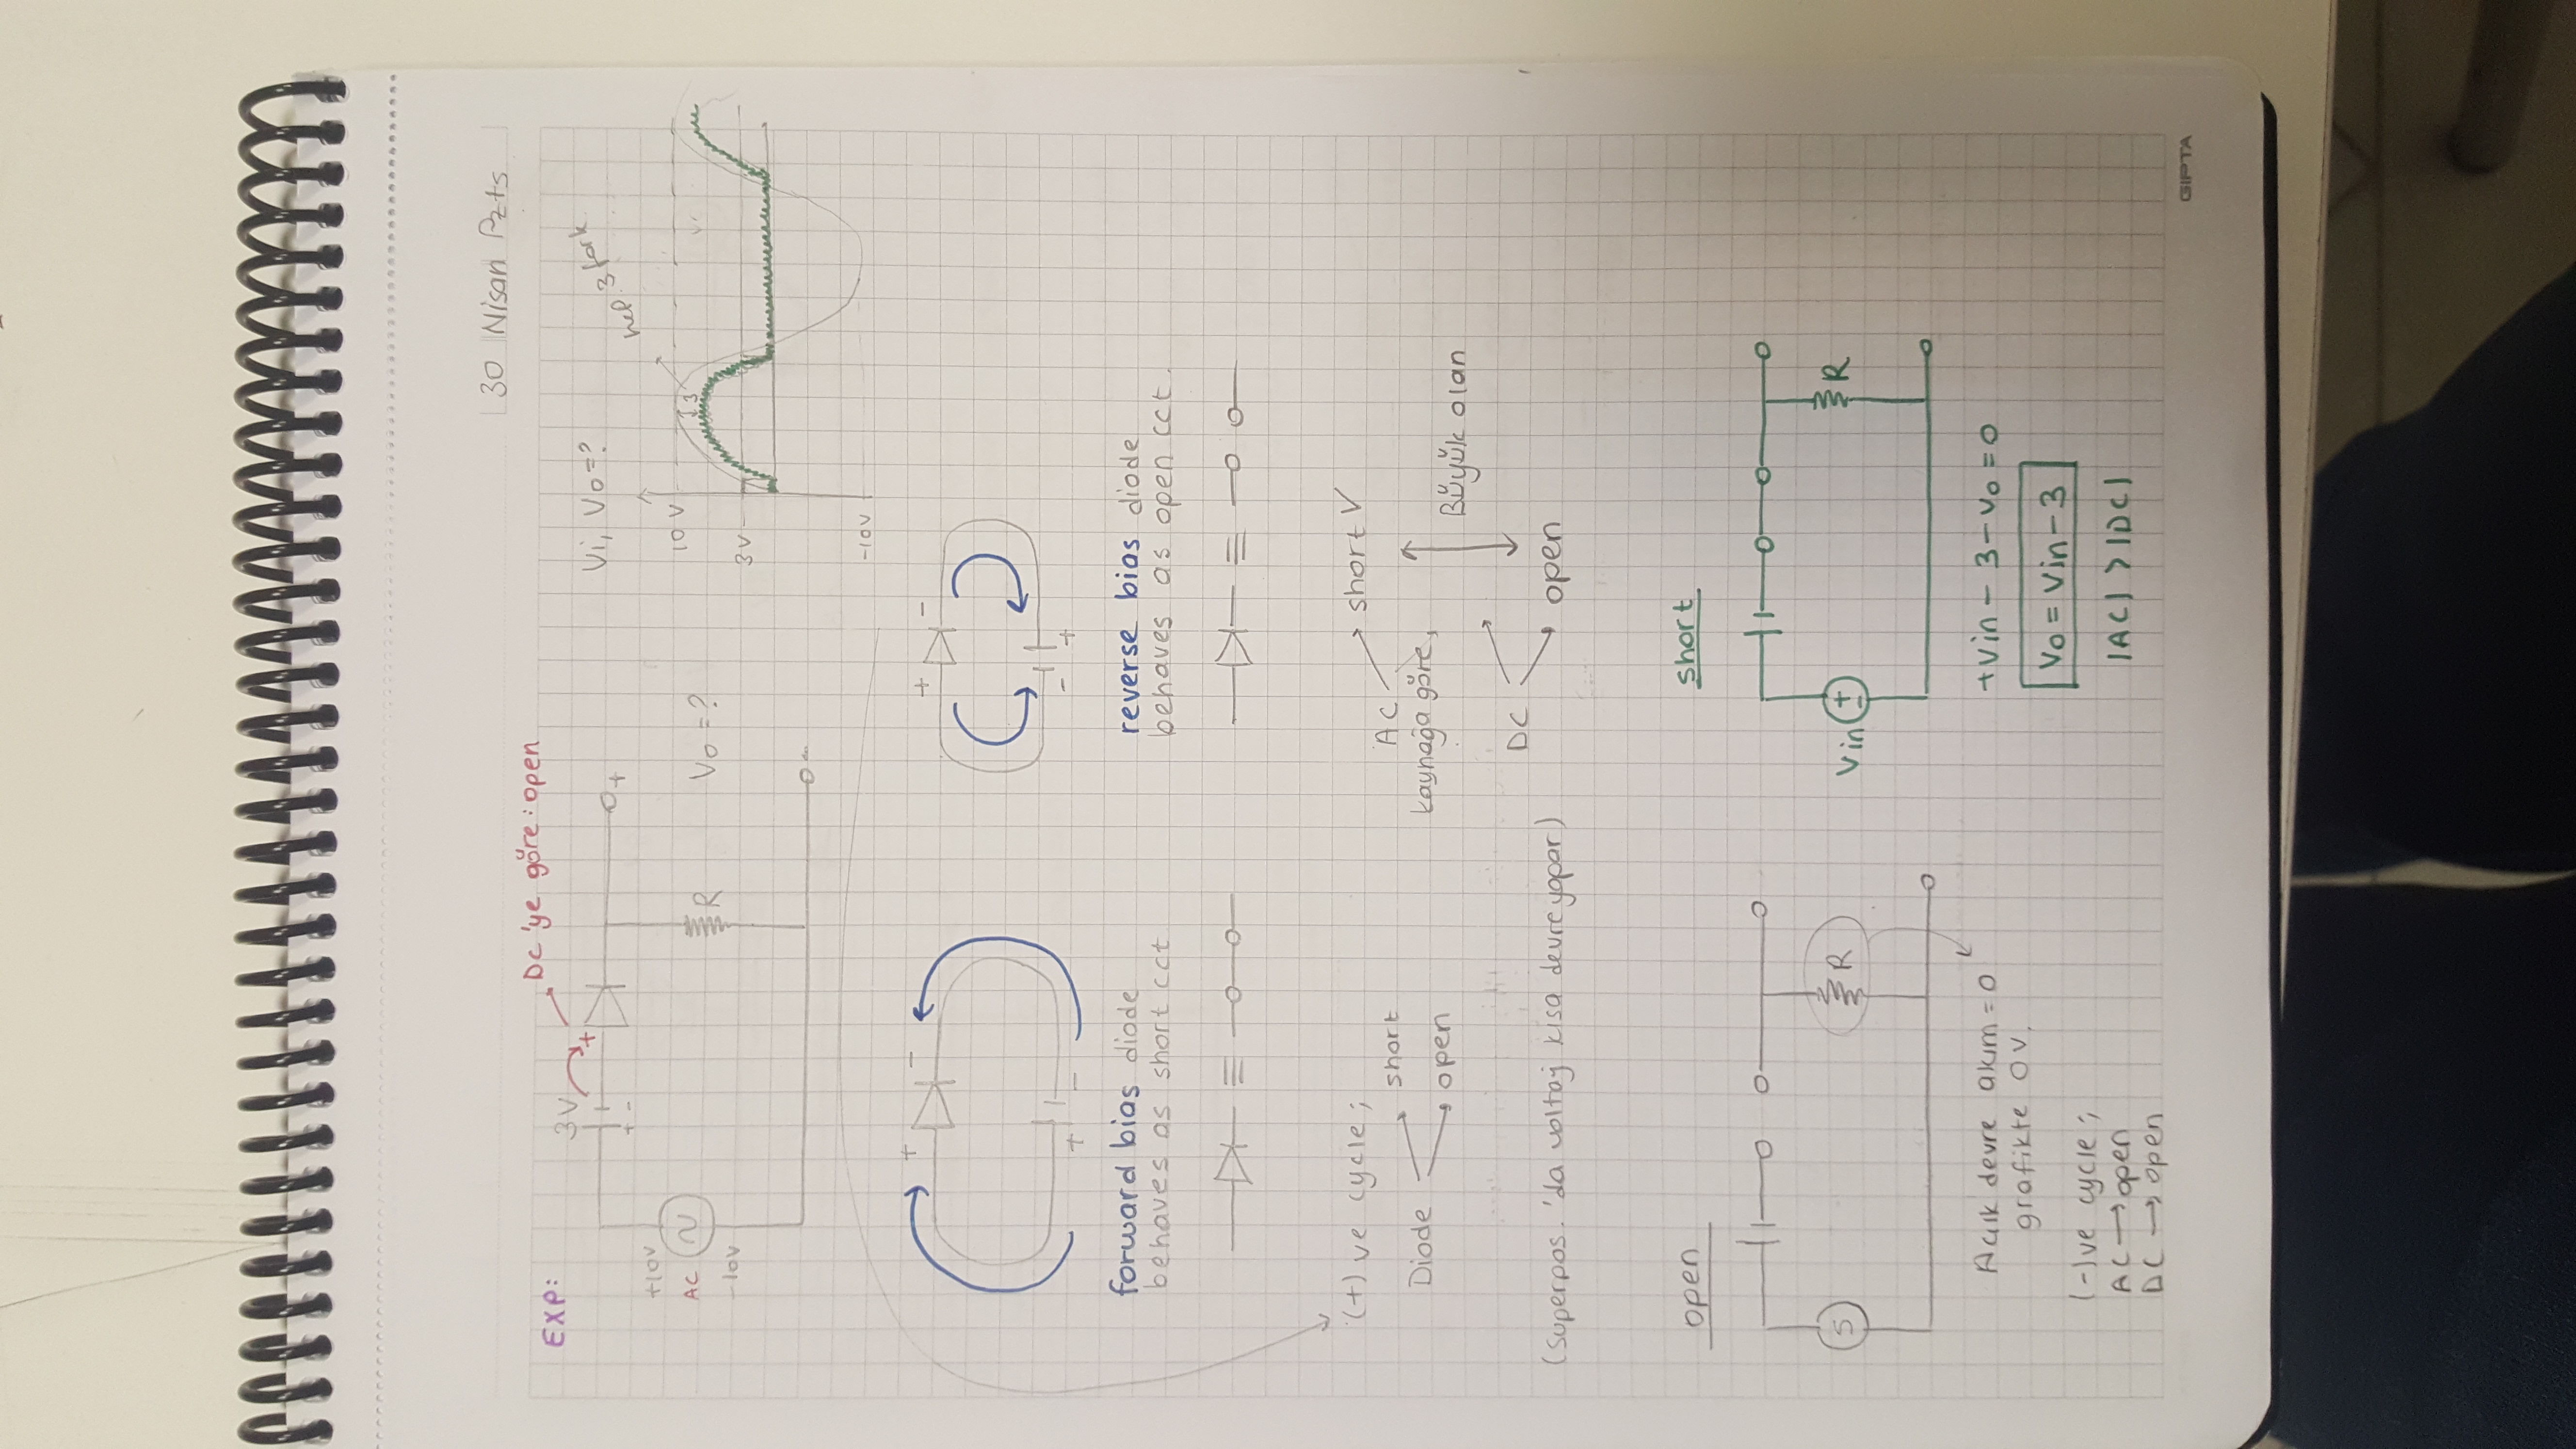 30 Nisan Pzts
EXP:
Dc 'ye göre: open
3V
+
+ -
+
+10V
AC
-10V
R
Vo = ?
-
Vi, Vo=?
hep 3 fark
10 V
3
3V
-10V
+ -
+ -
forward bias diode
behaves as short cct
+ -
- +
reverse bias diode
behaves as open cct.
≡
≡
(+)ve cycle;
Diode
short
open
AC
short √
kaynağa göre,
Büyük olan
DC
open
(Superpos. 'da voltaj kısa devre yapar)
open
S
R
Açık devre akım = 0
grafikte 0V.
(-)ve cycle;
AC → open
DC → open
short
Vin
+
-
R
+Vin - 3 - Vo = 0
Vo = Vin - 3
|AC| > |DC|
GIPTA